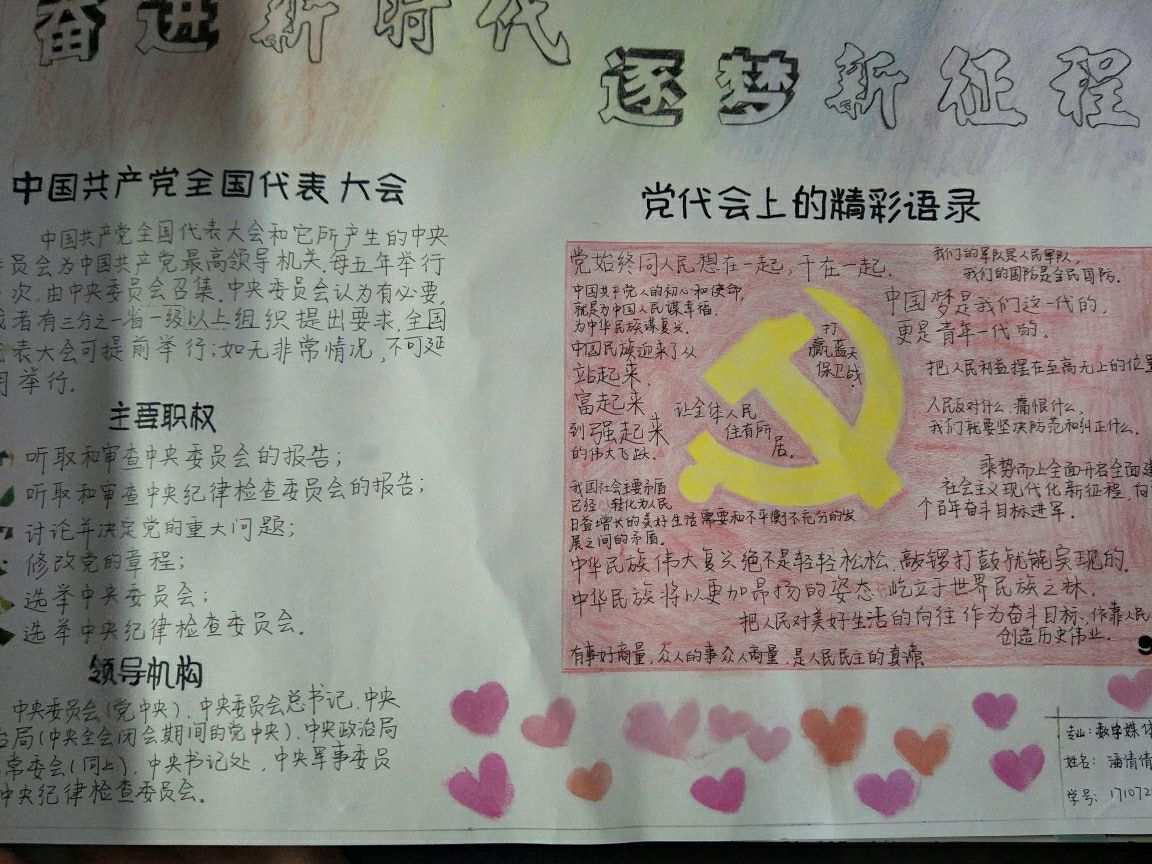 奋进新时代
逐梦新征程
中国共产党全国代表大会
中国共产党全国代表大会和它所产生的中央
员会为中国共产党最高领导机关.每五年举行
次,由中央委员会召集.中央委员会认为有必要,
或者有三分之一省一级以上组织提出要求,全国
代表大会可提前举行;如无非常情况,不可延
举行.
主要职权
听取和审查中央委员会的报告;
听取和审查中央纪律检查委员会的报告;
讨论并决定党的重大问题;
修改党的章程;
选举中央委员会;
选举中央纪律检查委员会.
领导机构
中央委员会(党中央).中央委员会总书记.中央
治局(中央全会闭会期间的党中央).中央政治局
常委会(同上).中央书记处,中央军事委员
中央纪律检查委员会.
党代会上的精彩语录
党始终同人民想在一起,干在一起.
我们的军队是人民军队,
我们的国防是全民国防.
中国共产党人的初心和使命,
就是为中国人民谋幸福,
为中华民族谋复兴.
中国梦是我们这一代的,
更是青年一代的.
中国民族迎来了从
站起来、
富起来
到强起来
的伟大飞跃.
打
赢蓝天
保卫战.
让全体人民
住有所
居.
把人民利益摆在至高无上的位置
人民反对什么、痛恨什么,
我们就要坚决防范和纠正什么.
乘势而上全面开启全面建
社会主义现代化新征程,向
个百年奋斗目标进军.
我国社会主要矛盾
已经转化为人民
日益增长的美好生活需要和不平衡不充分的发
展之间的矛盾.
中华民族伟大复兴绝不是轻轻松松、敲锣打鼓就能实现的.
中华民族将以更加昂扬的姿态屹立于世界民族之林.
把人民对美好生活的向往作为奋斗目标,依靠人民
创造历史伟业.
有事好商量,众人的事众人商量,是人民民主的真谛.
专业:数字媒体
姓名:潘倩倩
学号:171072